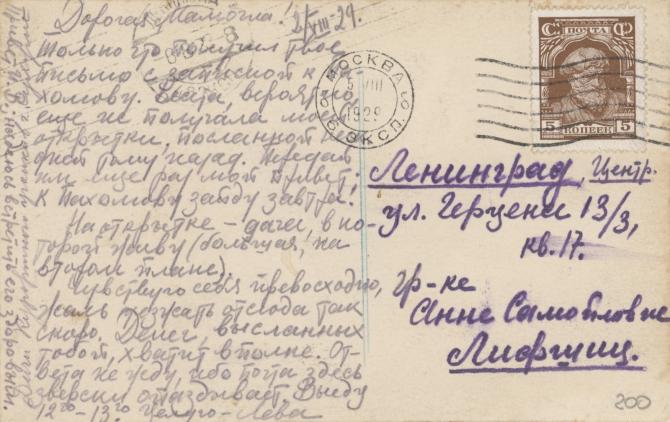 Дорогая Мамочка!
2/VIII-29.
Только что получил твое
письмо с запиской к Па-
хомову. Беата, вероятно,
еще не получала моей
открытки, посланной не-
дней тому назад. Передай
им еще раз мой привет.
К Пахомову зайду завтра.
На открытке - дача, в ко-
торой живу (большая, на
втором плане).
Чувствую себя превосходно,
жаль уезжать отсюда так
скоро. Денег, высланных
тобой, хватит вполне. От-
вета не жду, ибо почта здесь
зверски опаздывает. Выеду
12го-13го Целую-Лева
Привет
надеюсь встретить его здоровым.
МОСКВА
5 VIII
1929
ЭКСП.
ПОЧТА
5 КОПЕЕК 5
Ленинград, Центр.
ул. Герцена 13/3,
кв. 17.
гр-ке
Анне Самойловне
Лифшиц.
200